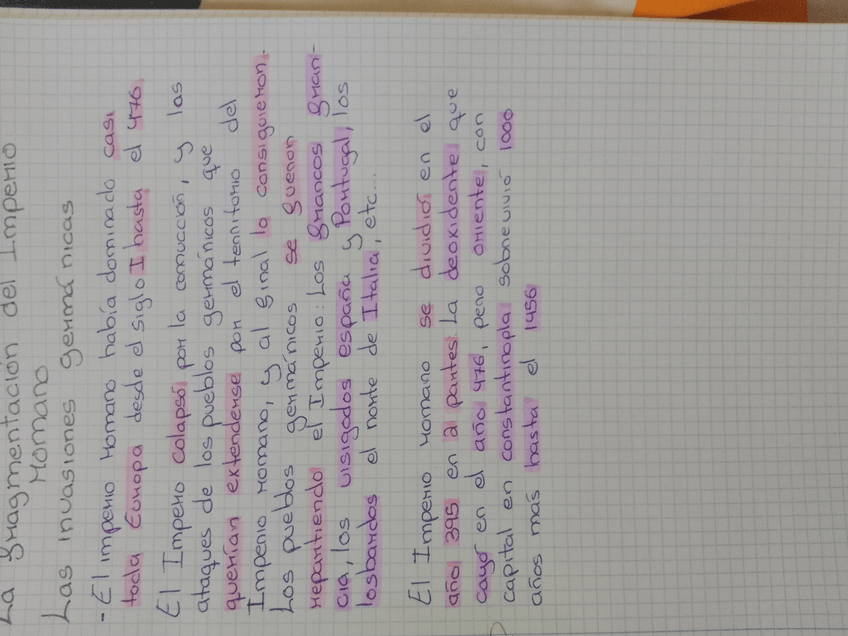 La Fragmentación del Imperio
Romano
Las invasiones germánicas
- El imperio romano había dominado casi
toda Europa desde el siglo I hasta el 476
El Impero colapsó por la corrucción, y las
ataques de los pueblos germánicos que
querían extenderse por el territorio del
Imperio romano, y al final lo consiguieron.
Los pueblos germánicos se fueron
repartiendo el Imperio: Los francos fran-
cia, los visigodos españa y Portugal, los
losbardos el norte de Italia, etc...
El Imperio romano se dividió en el
año 395 en 2 partes. La deoxidente que
cayó en el año 476, pero oriente, con
capital en constantinopla sobrevivió 1000
años más hasta el 1456